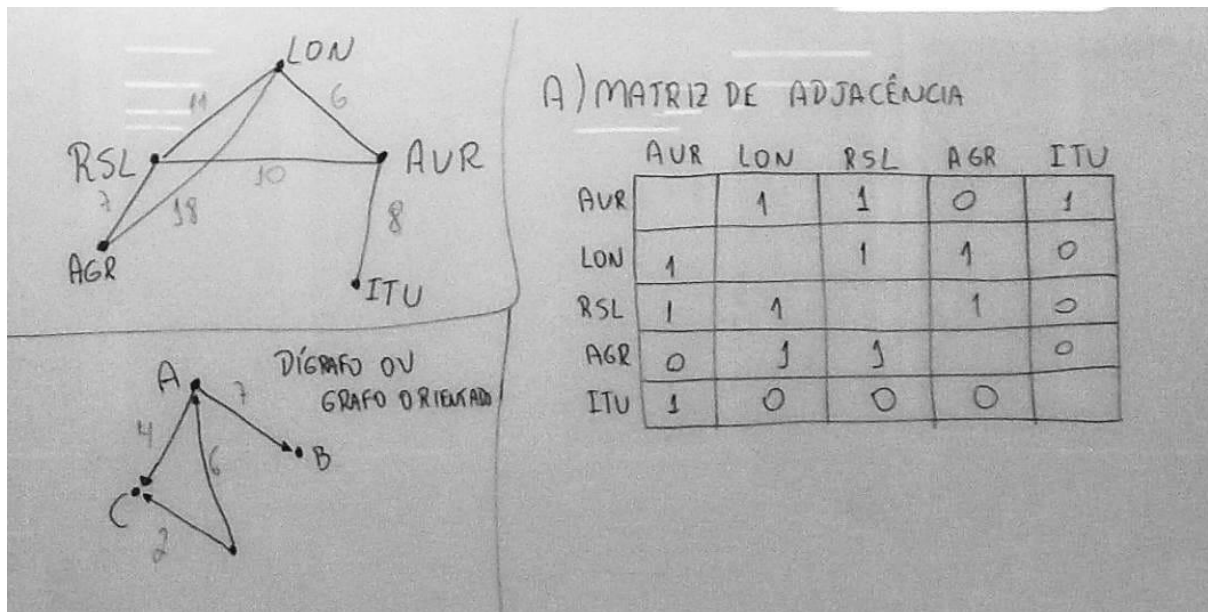 LON
11
6
RSL
AUR
10
7
18
8
AGR
ITU
DÍGRAFO OU
GRAFO ORIENTADO
A
7
4
6
B
C
2
A) MATRIZ DE ADJACÊNCIA
AUR LON RSL AGR ITU
AUR 1 1 0 1
LON 1 1 1 0
RSL 1 1 1 0
AGR 0 1 1 0
ITU 1 0 0 0